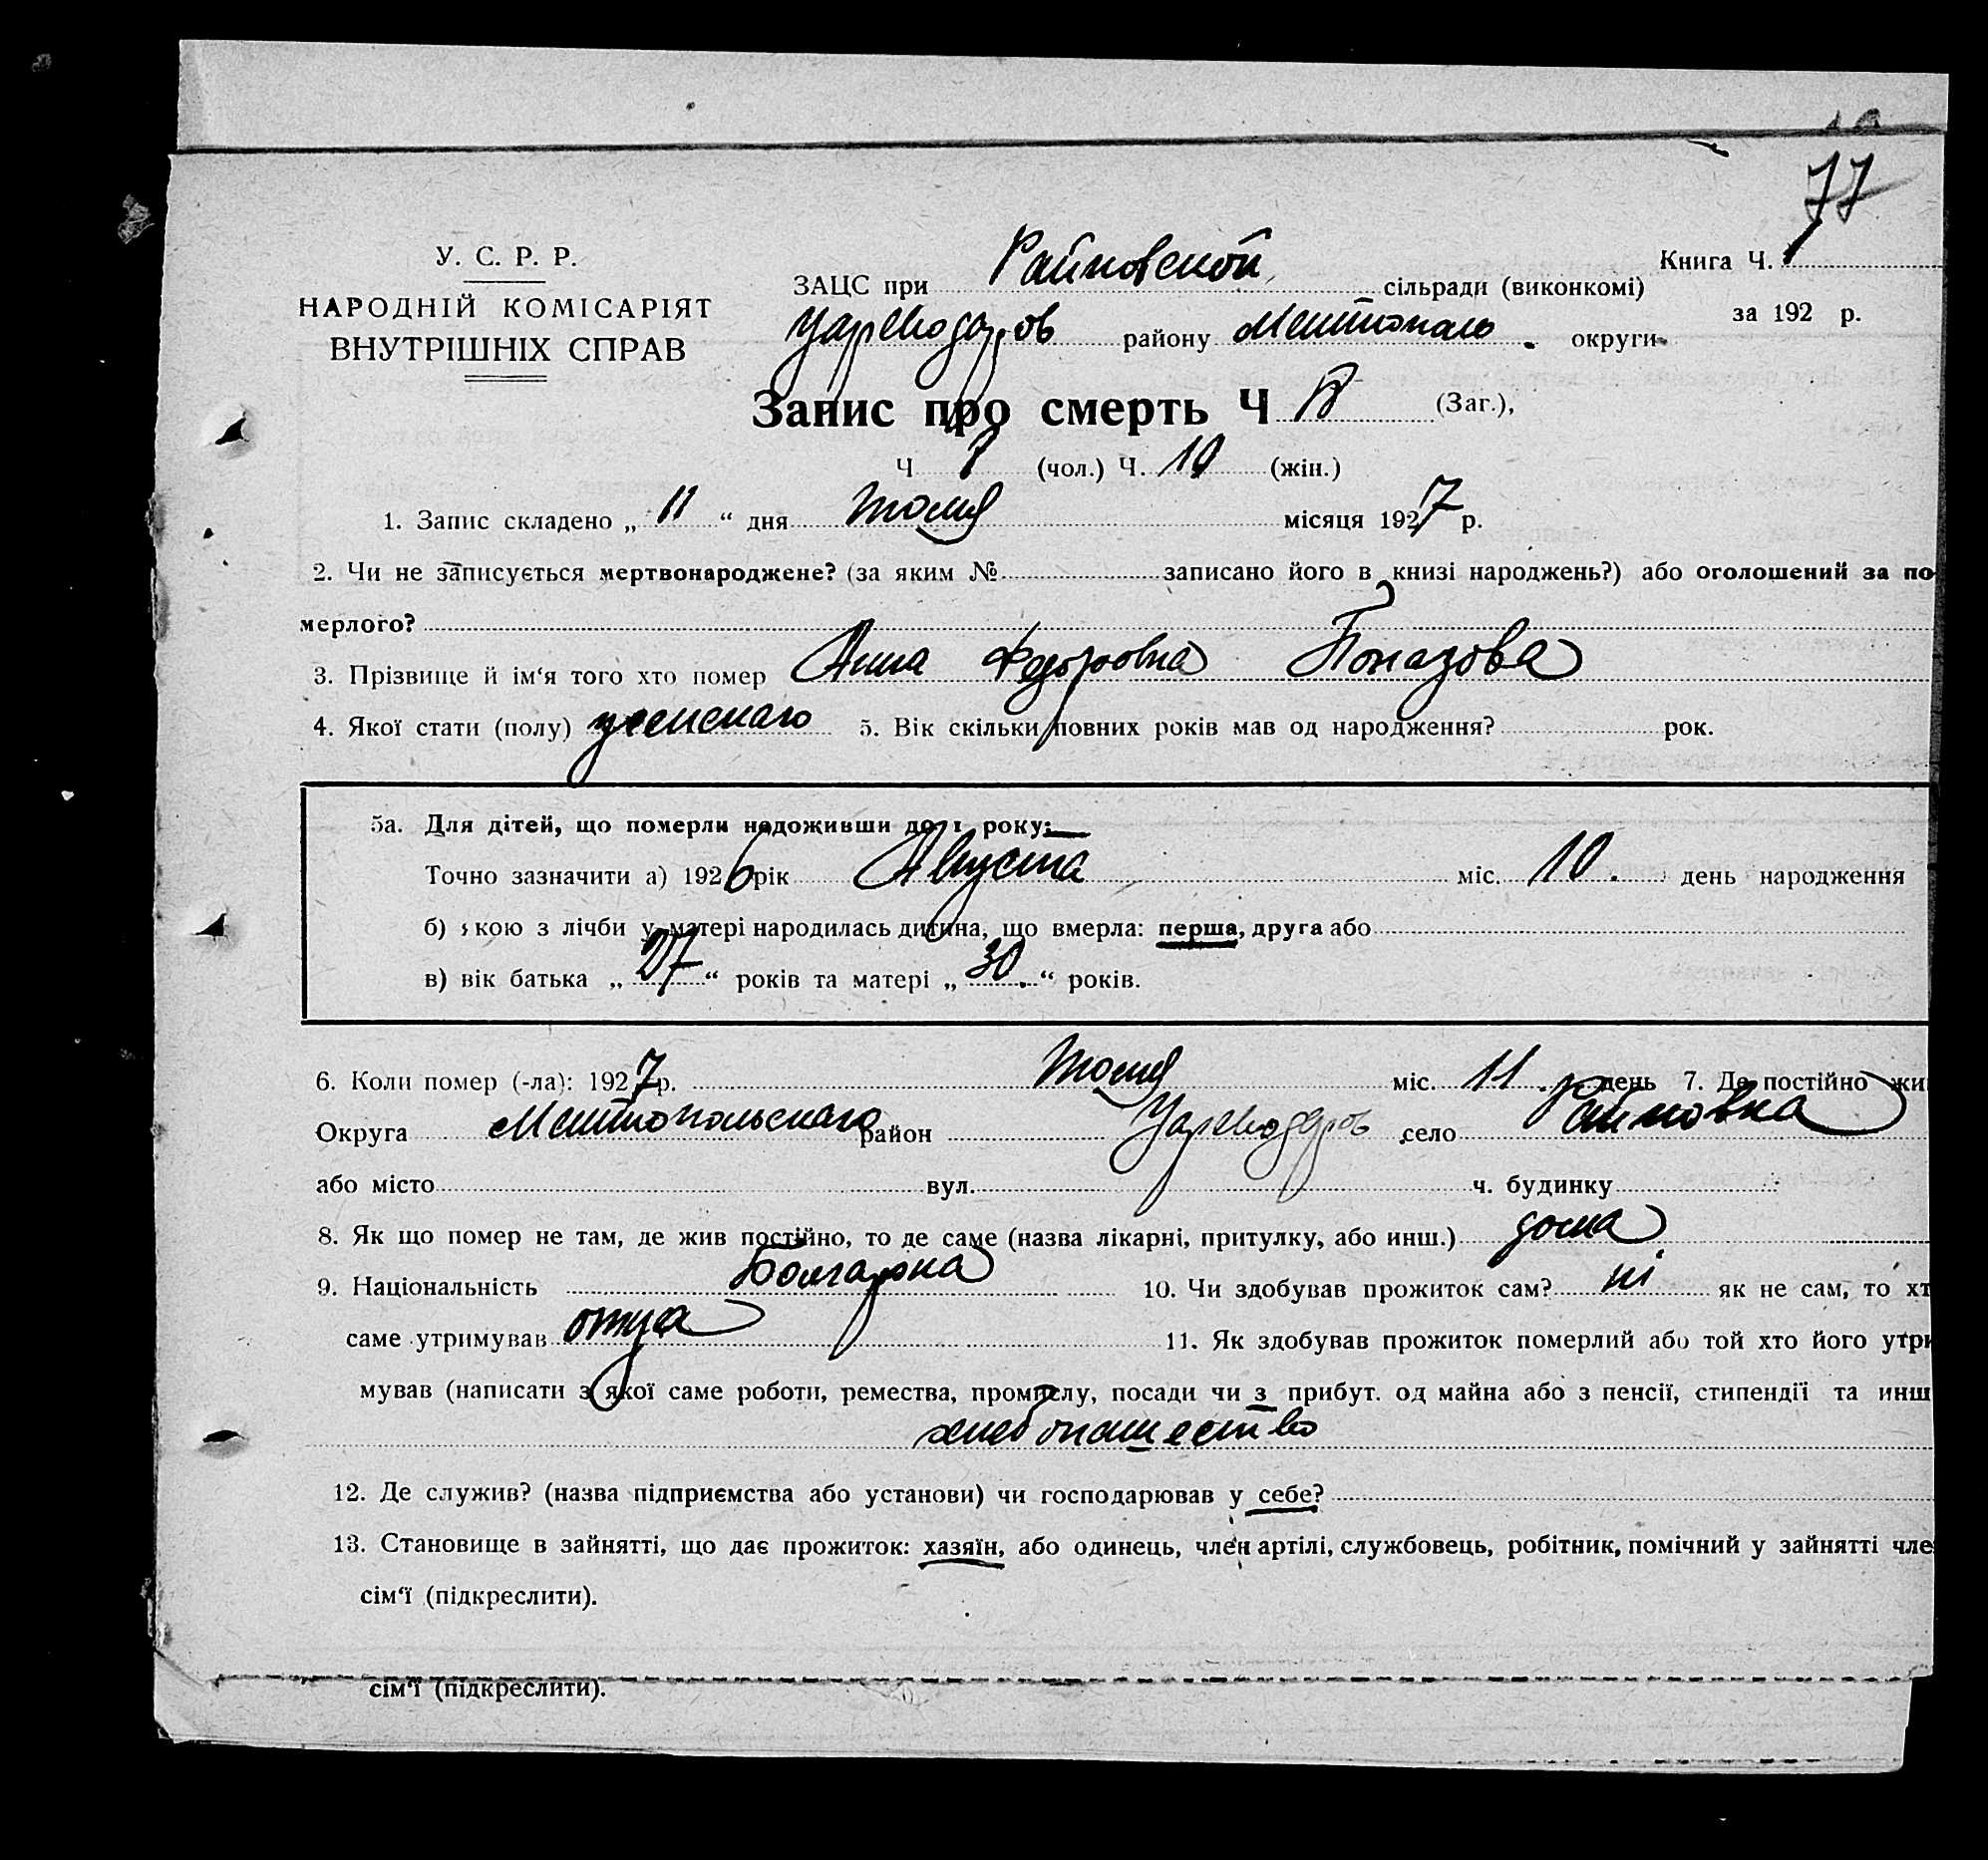 77
У. С. Р. Р.
НАРОДНІЙ КОМІСАРІЯТ
ВНУТРІШНІХ СПРАВ
ЗАЦС при Райновской сільради (виконкомі)
Книга Ч.
за 192 р.
Цареводаров району Мелитополь. округи
Запис про смерть Ч (Заг.),
Ч 8 (чол.) Ч. 10 (жін.)
1. Запис складено „ 11 “ дня Июля місяця 1927 р.
2. Чи не записується мертвонароджене? (за яким № записано його в книзі народжень?) або оголошений за по-
мерлого?
3. Прізвище й ім‘я того хто помер Анна Федоровна Поназова
4. Якої стати (полу) женскаго 5. Вік скільки повних років мав од народження? рок.
5а. Для дітей, що померли недоживши до 1 року:
Точно зазначити а) 1926 рік Августа міс. 10. день народження
б) якою з лічби у матері народилась дитина, що вмерла: перша, друга або
в) вік батька „ 27 “ років та матері „ 30. “ років.
6. Коли помер (-ла): 1927 р. Июля міс. 11. день 7. Де постійно жи
Округа Мелитопольскаго район Цареводаров село Райновка
або місто вул. ч. будинку
8. Як що помер не там, де жив постійно, то де саме (назва лікарні, притулку, або инш.) дома
9. Національність Болгарка 10. Чи здобував прожиток сам? ні як не сам, то хт
саме утримував отца 11. Як здобував прожиток померлий або той хто його утри
мував (написати з якої саме роботи, ремества, промислу, посади чи з прибут. од майна або з пенсії, стипендії та инш
хлебопашество
12. Де служив? (назва підприємства або установи) чи господарював у себе?
13. Становище в зайнятті, що дає прожиток: хазяїн, або одинець, член артілі, службовець, робітник, помічний у зайнятті чле
сім‘ї (підкреслити).
сім‘ї (підкреслити).